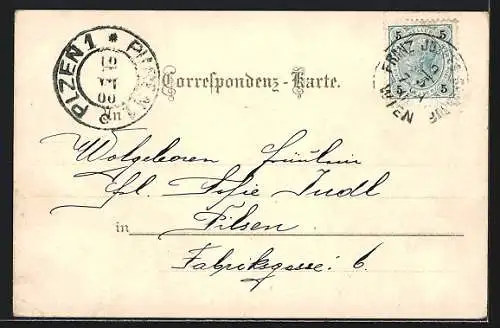 PLZEN 1 * PILSEN 1
5 5
5 5
WIEN FRANZ JOSEFS
Correspondenz-Karte.
Wolgeboren Fräulein
Frl. Sofie Tudl
in Pilsen
Fabriksgasse: 6.